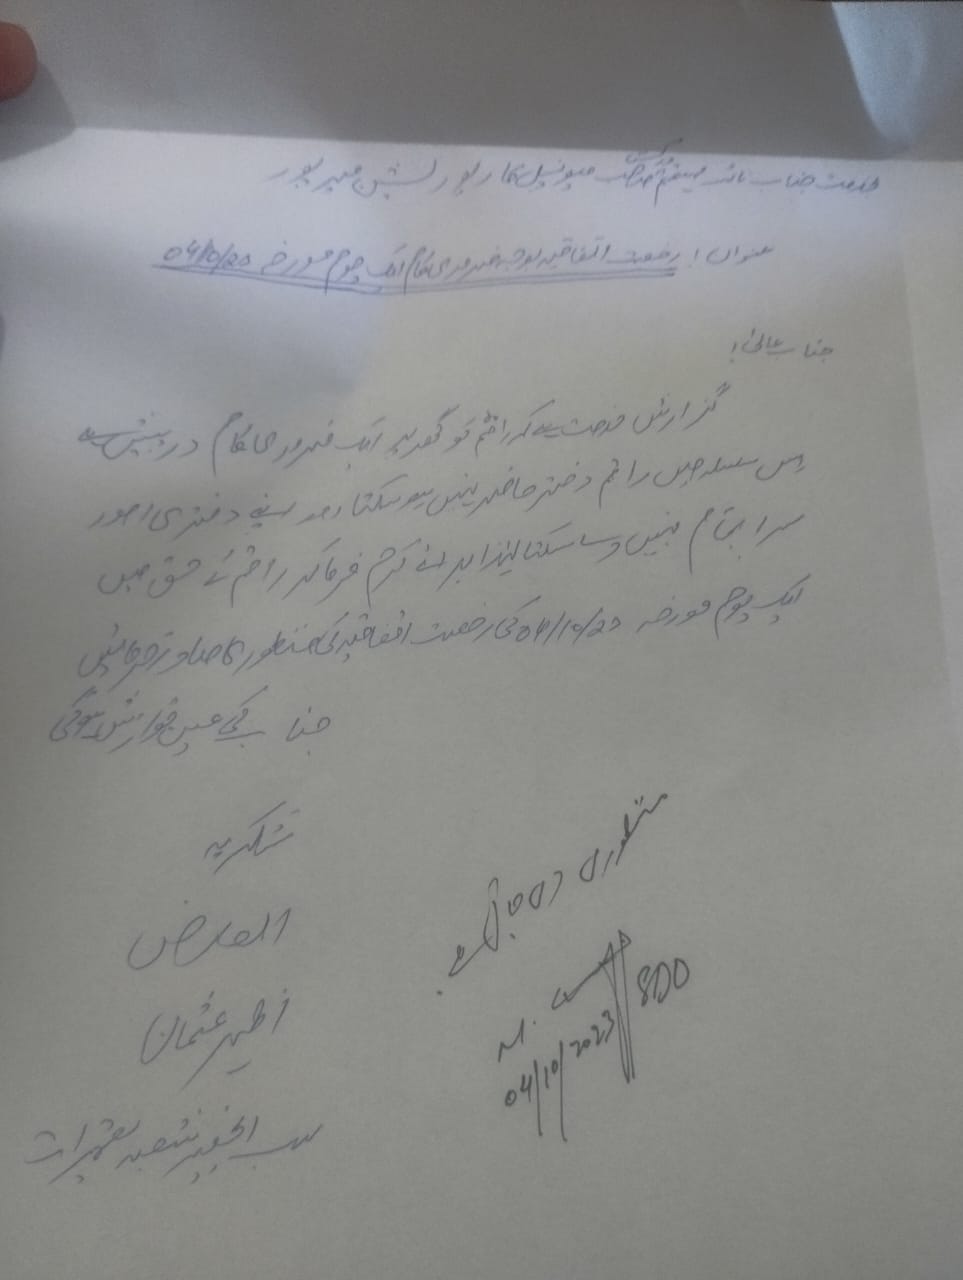 بخدمت جناب نائب میونسپل کارپوریشن میرپور
عنوان! رخصت اتفاقیہ بوجہ ضروری کام ایک یوم مورخہ 04/10/23
جناب عالی!
گزارش خدمت ہے کہ راقم کو گھر پر ایک ضروری کام درپیش ہے
جس سلسلہ میں راقم دفتر حاضر نہیں ہو سکتا اور اپنے دفتری امور
سر انجام نہیں دے سکتا لہذا برائے کرم فرما کر راقم کے حق میں
ایک یوم مورخہ 04/10/23 کی رخصت اتفاقیہ کی منظوری صادر فرمائیں
جناب کی عین نوازش ہوگی
شکریہ
العارض
ظہیر عثمان
سب انجینئر شعبہ تعمیرات
منظوری دی جاتی ہے۔
SDO
04/10/2023